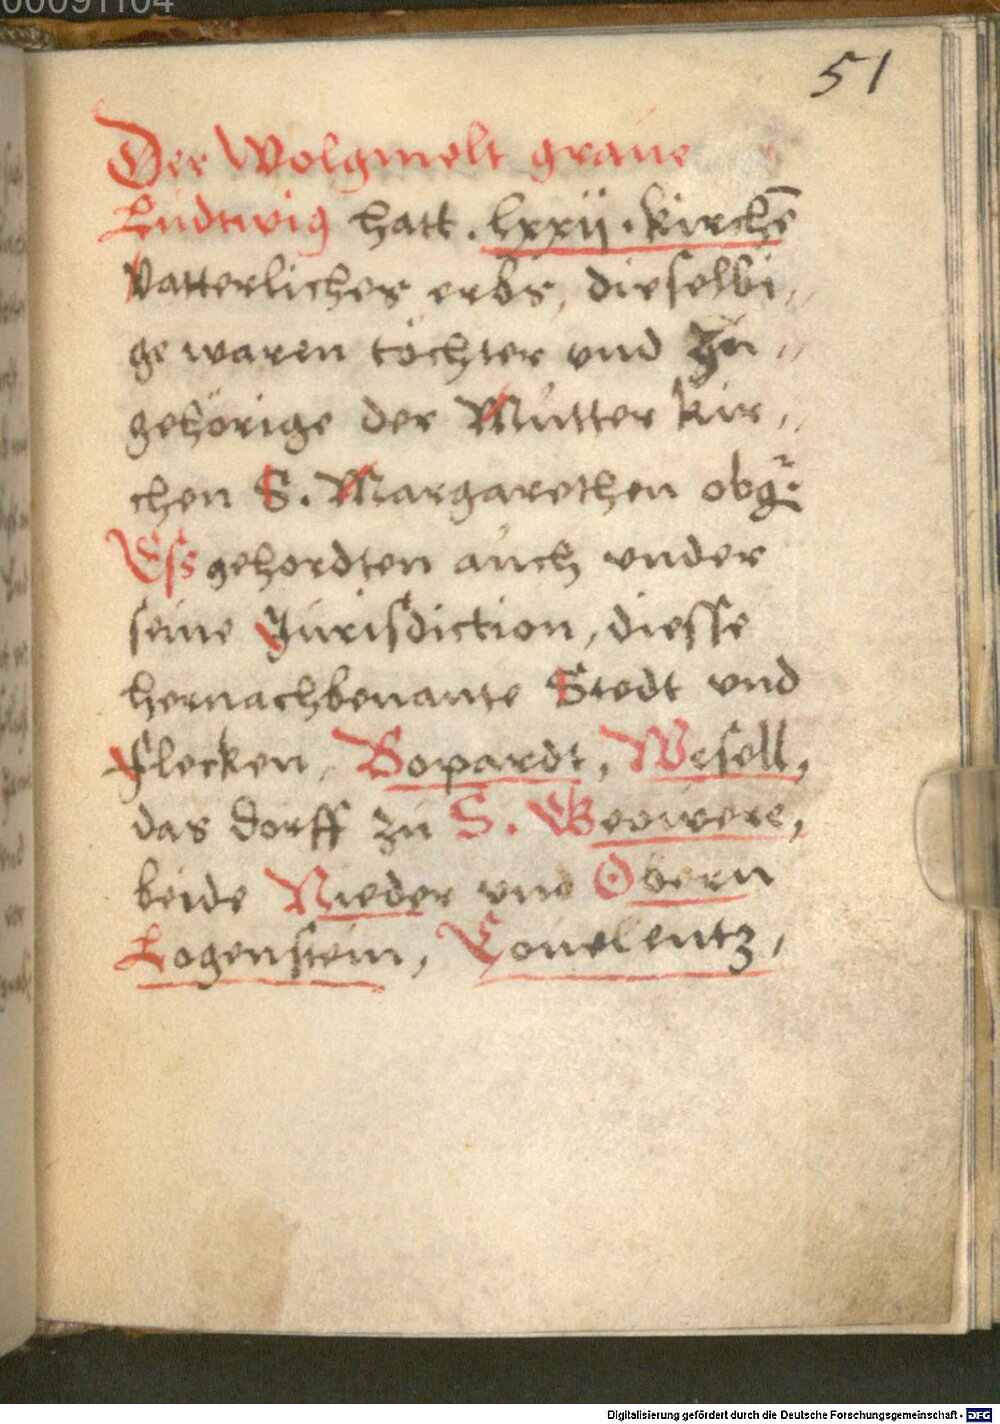 00091104
51
Der Wolgmelt graue
Ludtwig hatt . lxxij . kirchē
vatterliches erbs, dieselbi„
ge waren töchter vnd zu„
gehörige der Mutter kir„
chen S. Margarethen obg:
Ess gehordten auch vnder
seine Jurisdiction, diesse
hernachbenante Stedt und
Flecken, Bopardt, Wesell,
das dorff zu S. Gewere,
beide Nieder vnd Obern
Logenstein, Couelentz,
Digitalisierung gefördert durch die Deutsche Forschungsgemeinschaft - DFG